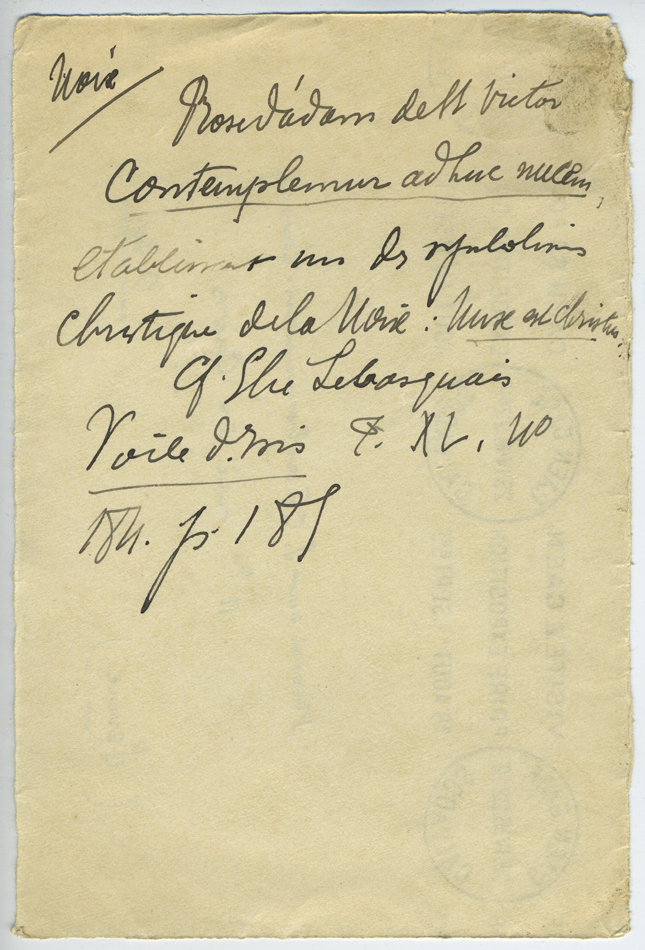 Noix
Prose d'Adam de St Victor
Contemplemur adhuc nucem,
établissant un des symbolismes
christique de la Noix : Nux est Christus.
Cf. Elie Lebasquais
Voile d'Isis T. XL, No
184. p. 185